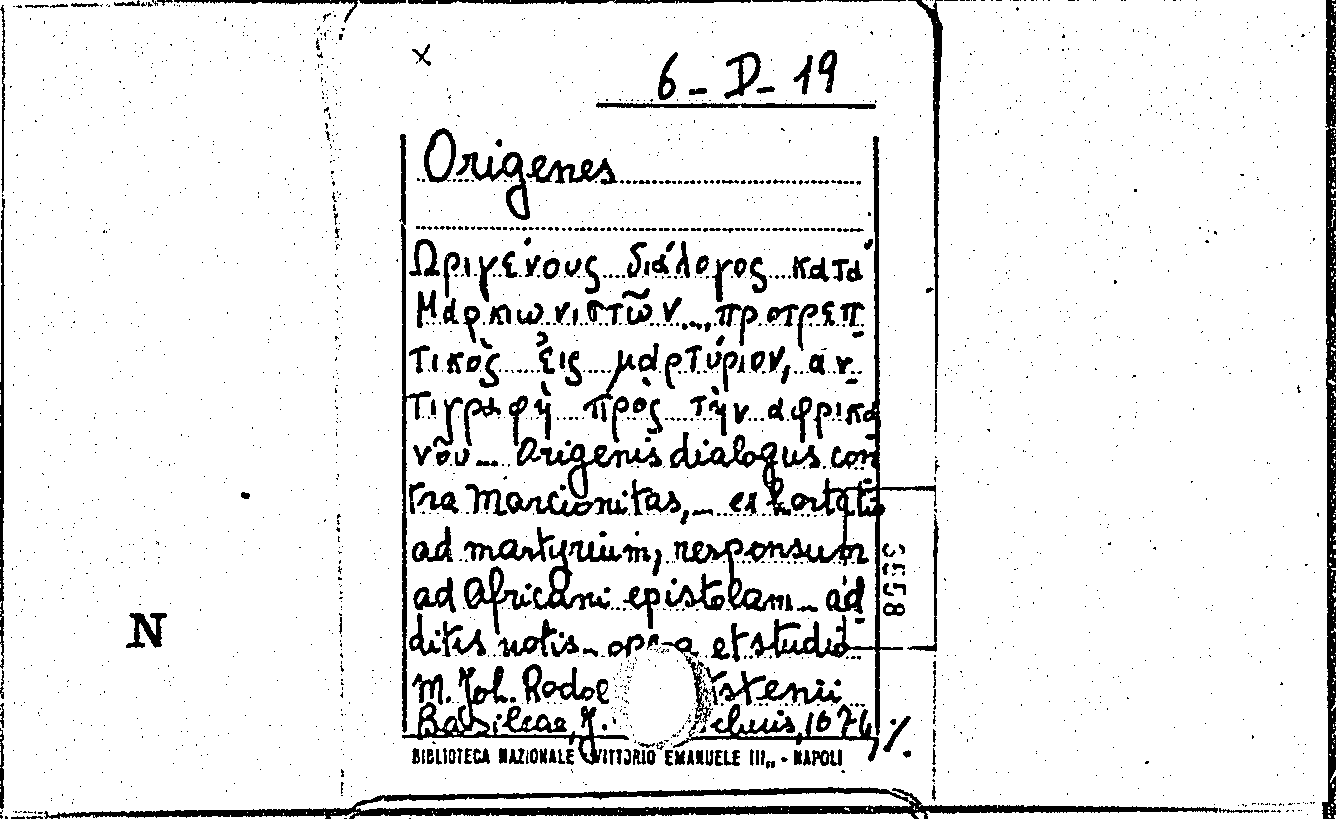 x
6-D-19
Origenes
Ωριγένους διάλογος κατά
Μαρκιωνιστῶν..., προτρεπ-
τικὸς ἐις μαρτύριον, αν-
τιγραφὴ πρὸς τὴν αφρικα
νοῦ... Origenis dialogus con
tra Marcionitas,... exhortatio
ad martyrium, responsum
ad Africani epistolam... ad-
ditis notis... opera et studio
M. Joh. Rodol stenii
Basileae, J. 1674,
BIBLIOTECA NAZIONALE "VITTORIO EMANUELE III„ - NAPOLI
3558
N